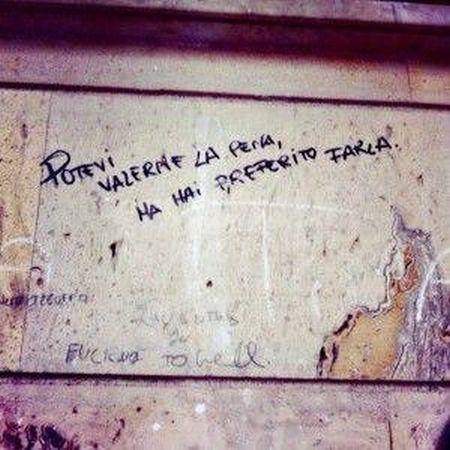 POTEVI
VALERNE LA PENA,
MA HAI PREFERITO FARLA.
TO hell.